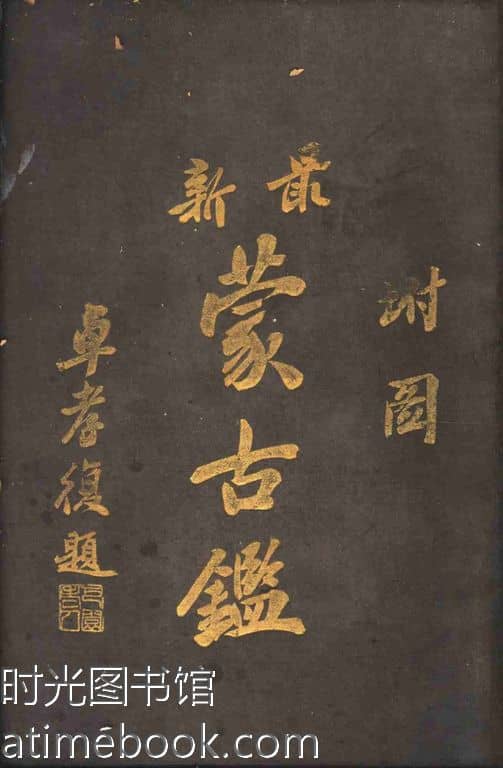 坿圖
最新
蒙古鑑
卓孝復題
时光图书馆
atimebook.com